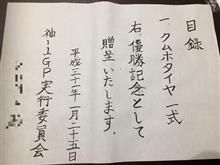 目録
一、クムホタイヤ一式
右、優勝記念として
贈呈いたします。
平成三十一年一月二十五日
袖1GP実行委員会